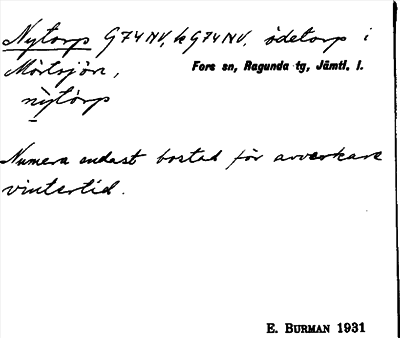 Nytorp G74NV, kG74NV. ödetorp i
Mörtsjön,
Fors sn, Ragunda tg, Jämtl. l.
nỳtórp
Numera endast bostad för avverkare
vintertid.
E. BURMAN 1931